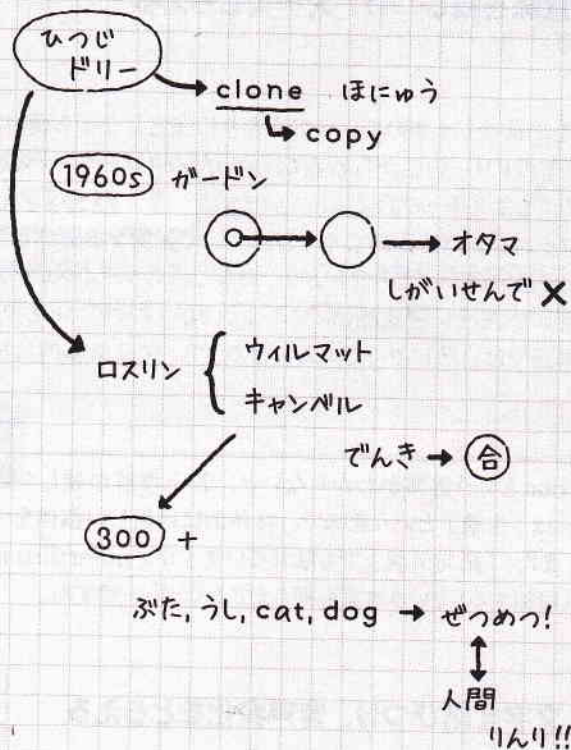 ひつじ
ドリー
clone ほにゅう
copy
1960s ガードン
オタマ
しがいせんで ×
ロスリン
ウィルマット
キャンベル
でんき → 合
300 +
ぶた, うし, cat, dog → ぜつめつ!
人間
りんり!!